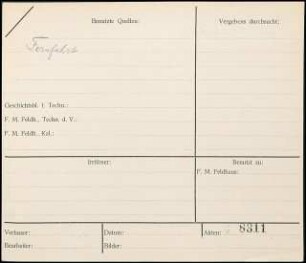 Benutzte Quellen:
Vergebens durchsucht:
Geschichtsbl. f. Techn.:
F. M. Feldh., Techn. d. V.:
F. M. Feldh., Kol.:
Irrtümer:
Benutzt zu:
F. M. Feldhaus:
Verfasser:
Datum:
Akten:
8311
Bearbeiter:
Bilder: